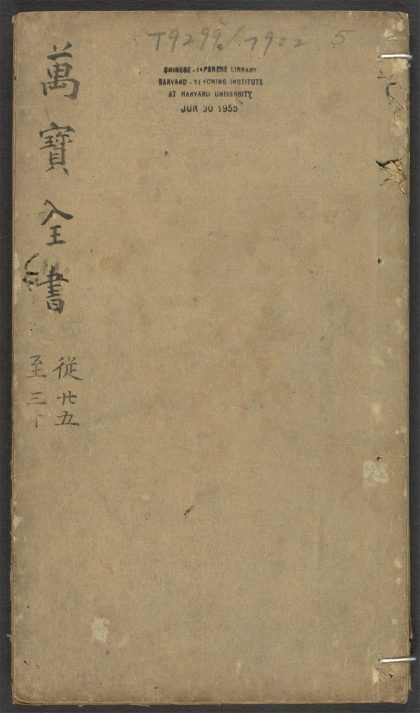 T9299/7922 5
CHINESE-JAPANESE LIBRARY
HARVARD-YENCHING INSTITUTE
AT HARVARD UNIVERSITY
JUN 30 1955
萬寶全書
從廿五
至三十